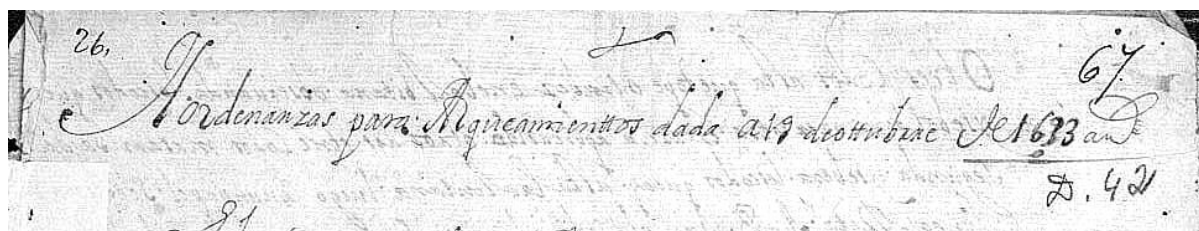 26,
67
Hordenanzas para Arqueamienttos dada a 19 de ottubrae de 1633 an
D. 42
El